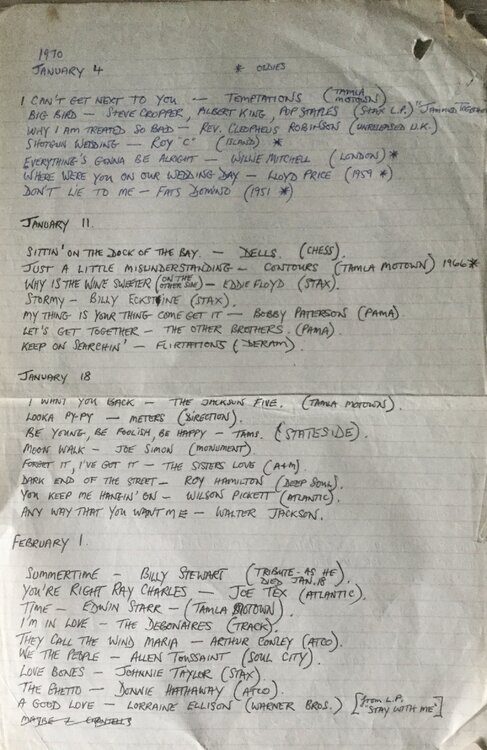 1970
JANUARY 4 * OLDIES
I CAN'T GET NEXT TO YOU — TEMPTATIONS (TAMLA MOTOWN)
BIG BIRD — STEVE CROPPER, ALBERT KING, POP STAPLES (STAX L.P.) "JAMMED TOGETHER
WHY I AM TREATED SO BAD — REV. CLEOPHEUS ROBINSON (UNRELEASED U.K.)
SHOTGUN WEDDING — ROY "C" (ISLAND) *
EVERYTHING'S GONNA BE ALRIGHT — WILLIE MITCHELL (LONDON) *
WHERE WERE YOU ON OUR WEDDING DAY — LLOYD PRICE (1959 *)
DON'T LIE TO ME — FATS DOMINO (1951 *)
JANUARY 11.
SITTIN' ON THE DOCK OF THE BAY — DELLS. (CHESS).
JUST A LITTLE MISUNDERSTANDING — CONTOURS (TAMLA MOTOWN) 1966 *
WHY IS THE WINE SWEETER (ON THE OTHER SIDE) — EDDIE FLOYD (STAX).
STORMY — BILLY ECKSTINE (STAX).
MY THING IS YOUR THING COME GET IT — BOBBY PATERSON (PAMA).
LET'S GET TOGETHER — THE OTHER BROTHERS. (PAMA).
KEEP ON SEARCHIN' — FLIRTATIONS (DERAM).
JANUARY 18
I WANT YOU BACK — THE JACKSON FIVE. (TAMLA MOTOWN).
LOOKA PY-PY — METERS (DIRECTION).
BE YOUNG, BE FOOLISH, BE HAPPY — TAMS. (STATESIDE).
MOON WALK — JOE SIMON (MONUMENT).
FORGET IT, I'VE GOT IT — THE SISTERS LOVE (A+M).
DARK END OF THE STREET — ROY HAMILTON (DEEP SOUL).
YOU KEEP ME HANGIN' ON — WILSON PICKETT (ATLANTIC).
ANY WAY THAT YOU WANT ME — WALTER JACKSON.
FEBRUARY 1.
SUMMERTIME — BILLY STEWART (TRIBUTE - AS HE DIED JAN.18).
YOU'RE RIGHT RAY CHARLES — JOE TEX (ATLANTIC).
TIME — EDWIN STARR — (TAMLA MOTOWN).
I'M IN LOVE — THE DEBONAIRES (TRACK).
THEY CALL THE WIND MARIA — ARTHUR CONLEY (ATCO).
WE THE PEOPLE — ALLEN TOUSSAINT (SOUL CITY).
LOVE BONES — JOHNNIE TAYLOR (STAX).
THE GHETTO — DONNIE HATHAWAY (ATCO).
A GOOD LOVE — LORRAINE ELLISON (WARNER BROS.) [from L.P. "STAY WITH ME"]
MAYBE